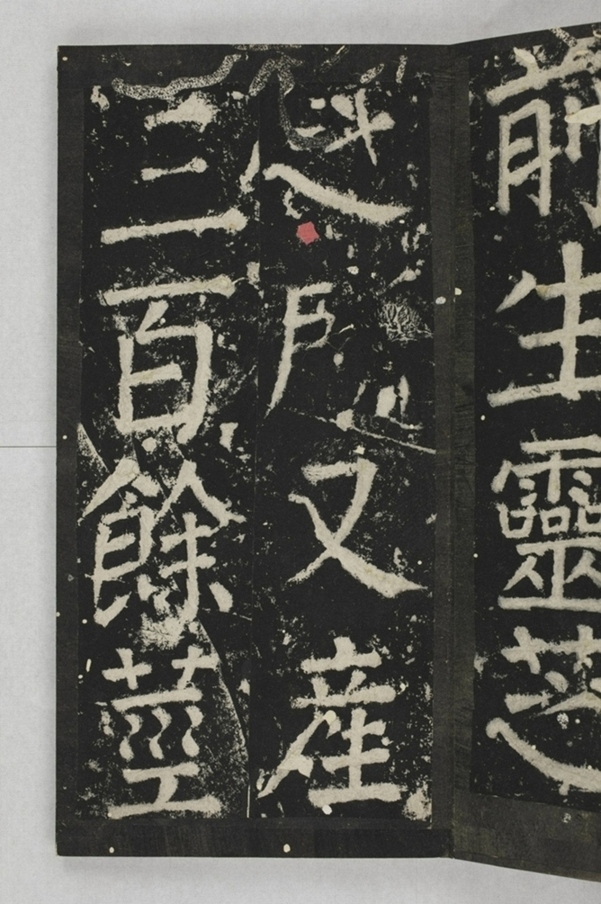 前生靈芝
所又產
三百餘莖